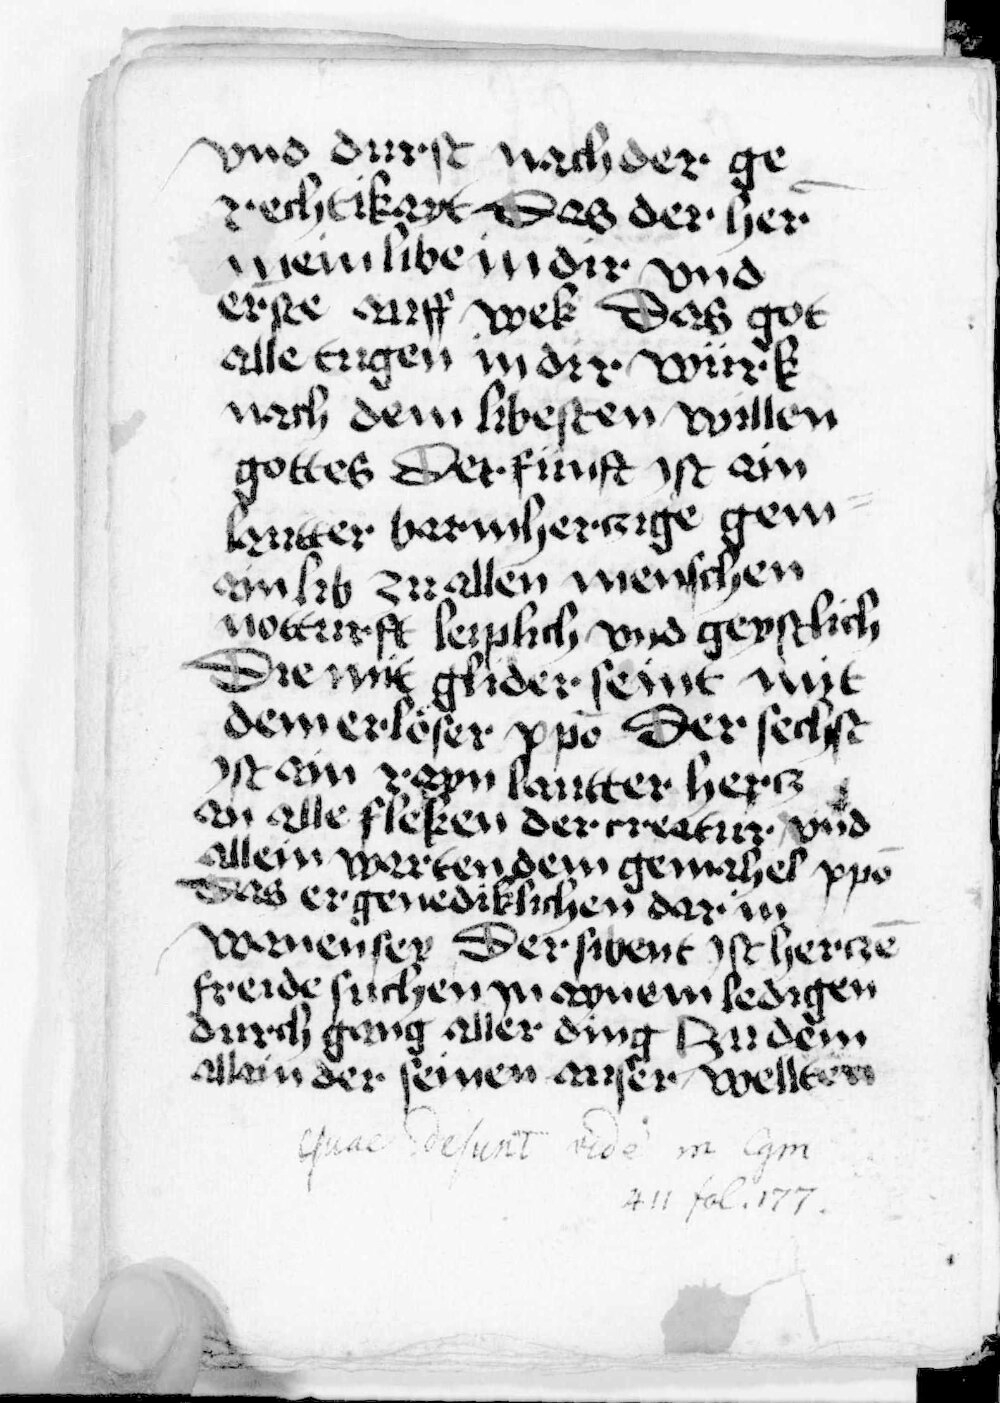 vnd durst nach der ge
rechtikayt Das der her̄
mein libe in dir vnd
erste auff wek Das got
alle tugen in dir würk
nach dem libesten willen
gottes Der fünft ist ain
lautter barmherczige gem=
ain lib zu allen menschen
notturft leiplich vnd geystlich
Die mit glider seint mit
dem erlöser xpō Der sechst
ist ain rayn lautter hercz
an alle fleken der creatur vnd
allein warten dem gemahel xpō
das er genediklichen dar in
wanen sey Der sibent ist herczē
freide suchen in aynem ledigen
durch gang aller ding Zu dem
allain der seinen auser wellten
Quae desunt vide in Cgm
411 fol. 177.